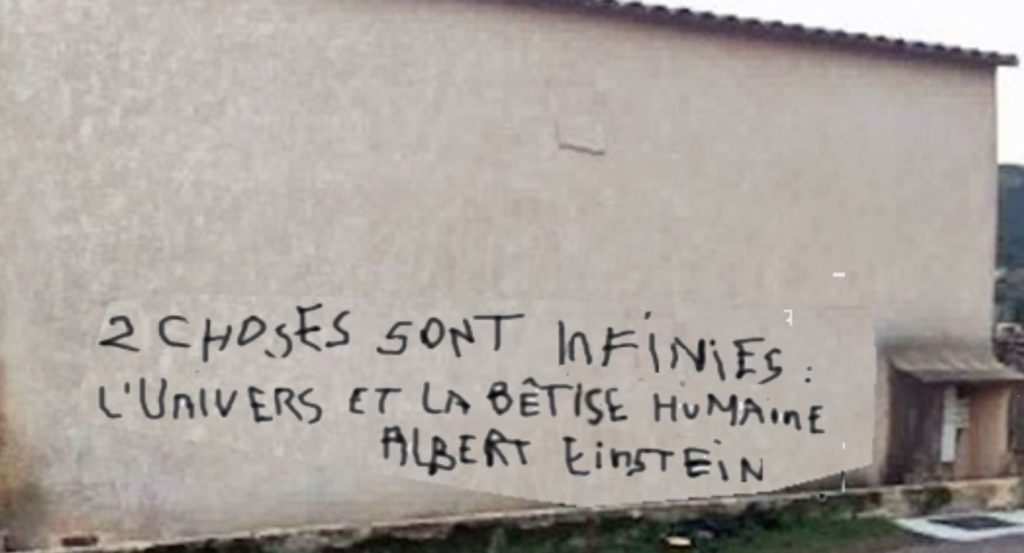 2 CHOSES SONT INFINIES :
L'UNIVERS ET LA BÊTISE HUMAINE
ALBERT EINSTEIN